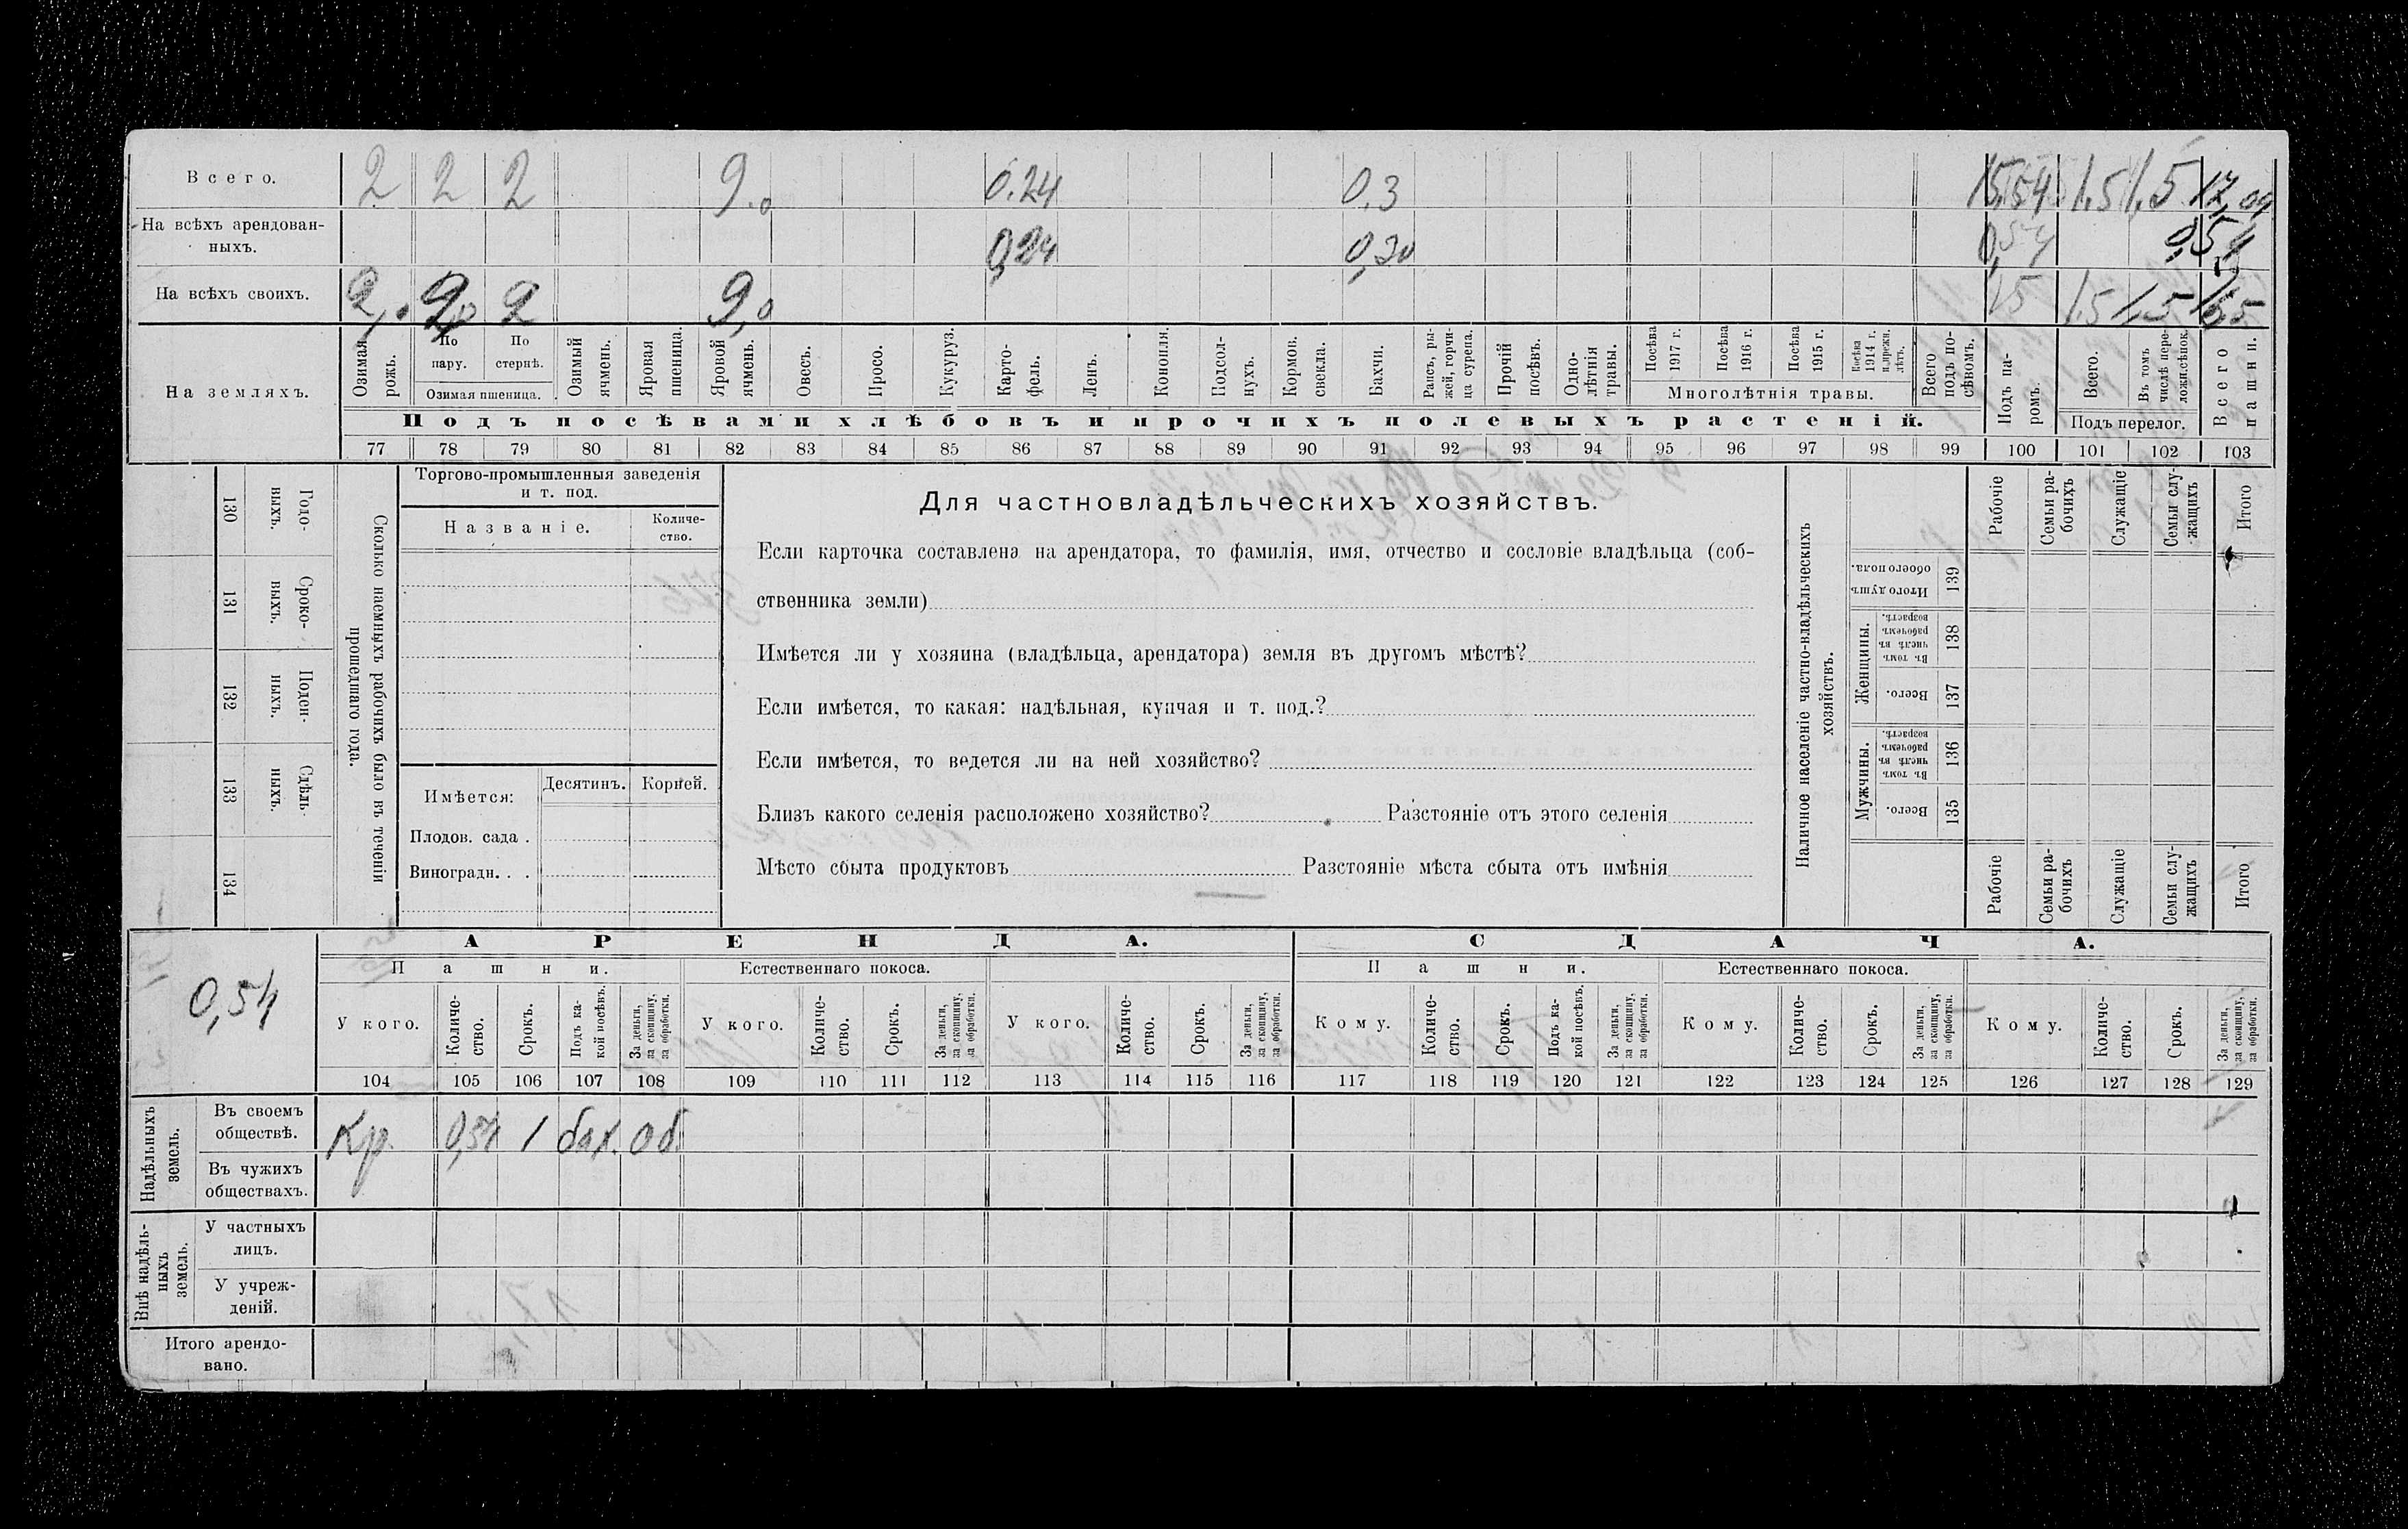 Всего. 2 2 2 9.0 0.24 0.3 15,54 1.5 1,5 17,04
На всѣхъ арендован-
ныхъ. 0,24 0,30 0,54 0,54
На всѣхъ своихъ. 2,0 2,0 2 9,0 15 1.5 1,5
На земляхъ.
Озимая
рожь.
По
пару.
По
стернѣ.
Озимая пшеница.
Озимый
ячмень.
Яровая
пшеница.
Яровой
ячмень.
Овесъ.
Просо.
Кукуруз.
Карто-
фель.
Ленъ.
Конопля.
Подсол-
нухъ.
Кормов.
свекла.
Бахчи.
Рапсъ, ры-
жей, горчи-
ца сурепа.
Прочій
посѣвъ.
Одно-
лѣтнія
травы.
Посѣва
1917 г.
Посѣва
1916 г.
Посѣва
1915 г.
Посѣва
1914 г.
и прежн.
лѣтъ.
Многолѣтнія травы.
Всего
подъ по-
сѣвомъ.
Подъ па-
ромъ.
Всего.
Въ томъ
числѣ пере-
ложн. сѣнок.
Подъ перелог.
Всего
пашни.
Подъ посѣвами хлѣбовъ и прочихъ полевыхъ растеній.
77 78 79 80 81 82 83 84 85 86 87 88 89 90 91 92 93 94 95 96 97 98 99 100 101 102 103
130 Годо-
ныхъ.
131 Сроко-
выхъ.
132 Поден-
ныхъ.
133 Сдѣль-
ныхъ.
134
Сколько наемныхъ рабочихъ было въ теченіи
прошедшаго года.
Торгово-промышленныя заведенія
и т. под.
Названіе.
Количе-
ство.
Имѣется:
Десятинъ. Корней.
Плодов. сада .
Виноградн. . .
Для частновладѣльческихъ хозяйствъ.
Если карточка составлена на арендатора, то фамилія, имя, отчество и сословіе владѣльца (соб-
ственника земли)
Имѣется ли у хозяина (владѣльца, арендатора) земля въ другомъ мѣстѣ?
Если имѣется, то какая: надѣльная, купчая и т. под.?
Если имѣется, то ведется ли на ней хозяйство?
Близъ какого селенія расположено хозяйство? Разстояніе отъ этого селенія
Мѣсто сбыта продуктовъ Разстояніе мѣста сбыта отъ имѣнія
Наличное населеніе частно-владѣльческихъ
хозяйствъ.
Рабочіе
Семьи ра-
бочихъ
Служащіе
Семьи слу-
жащихъ
Итого
Итого душъ
обоего пола.
139
Женщины.
Въ томъ
числѣ въ
рабочемъ
возрастѣ.
138
Всего.
137
Мужчины.
Въ томъ
числѣ въ
рабочемъ
возрастѣ.
136
Всего.
135
Рабочіе
Семьи ра-
бочихъ
Служащіе
Семьи слу-
жащихъ
Итого
0,54
АРЕНДА. СДАЧА.
Пашни. Естественнаго покоса. Пашни. Естественнаго покоса.
У кого.
Количе-
ство.
Срокъ.
Подъ ка-
кой посѣвъ.
За деньги,
за скопщину,
за обработки.
У кого.
Количе-
ство.
Срокъ.
За деньги,
за скопщину,
за обработки.
У кого.
Количе-
ство.
Срокъ.
За деньги,
за скопщину,
за обработки.
Кому.
Количе-
ство.
Срокъ.
Подъ ка-
кой посѣвъ.
За деньги,
за скопщину,
за обработки.
Кому.
Количе-
ство.
Срокъ.
За деньги,
за скопщину,
за обработки.
Кому.
Количе-
ство.
Срокъ.
За деньги,
за скопщину,
за обработки.
104 105 106 107 108 109 110 111 112 113 114 115 116 117 118 119 120 121 122 123 124 125 126 127 128 129
Надѣльныхъ
земель.
Въ своемъ
обществѣ. Кр. 0,54 1 бах. об.
Въ чужихъ
обществахъ.
Внѣ надѣль-
ныхъ
земель.
У частныхъ
лицъ.
У учреж-
деній.
Итого арендо-
вано.